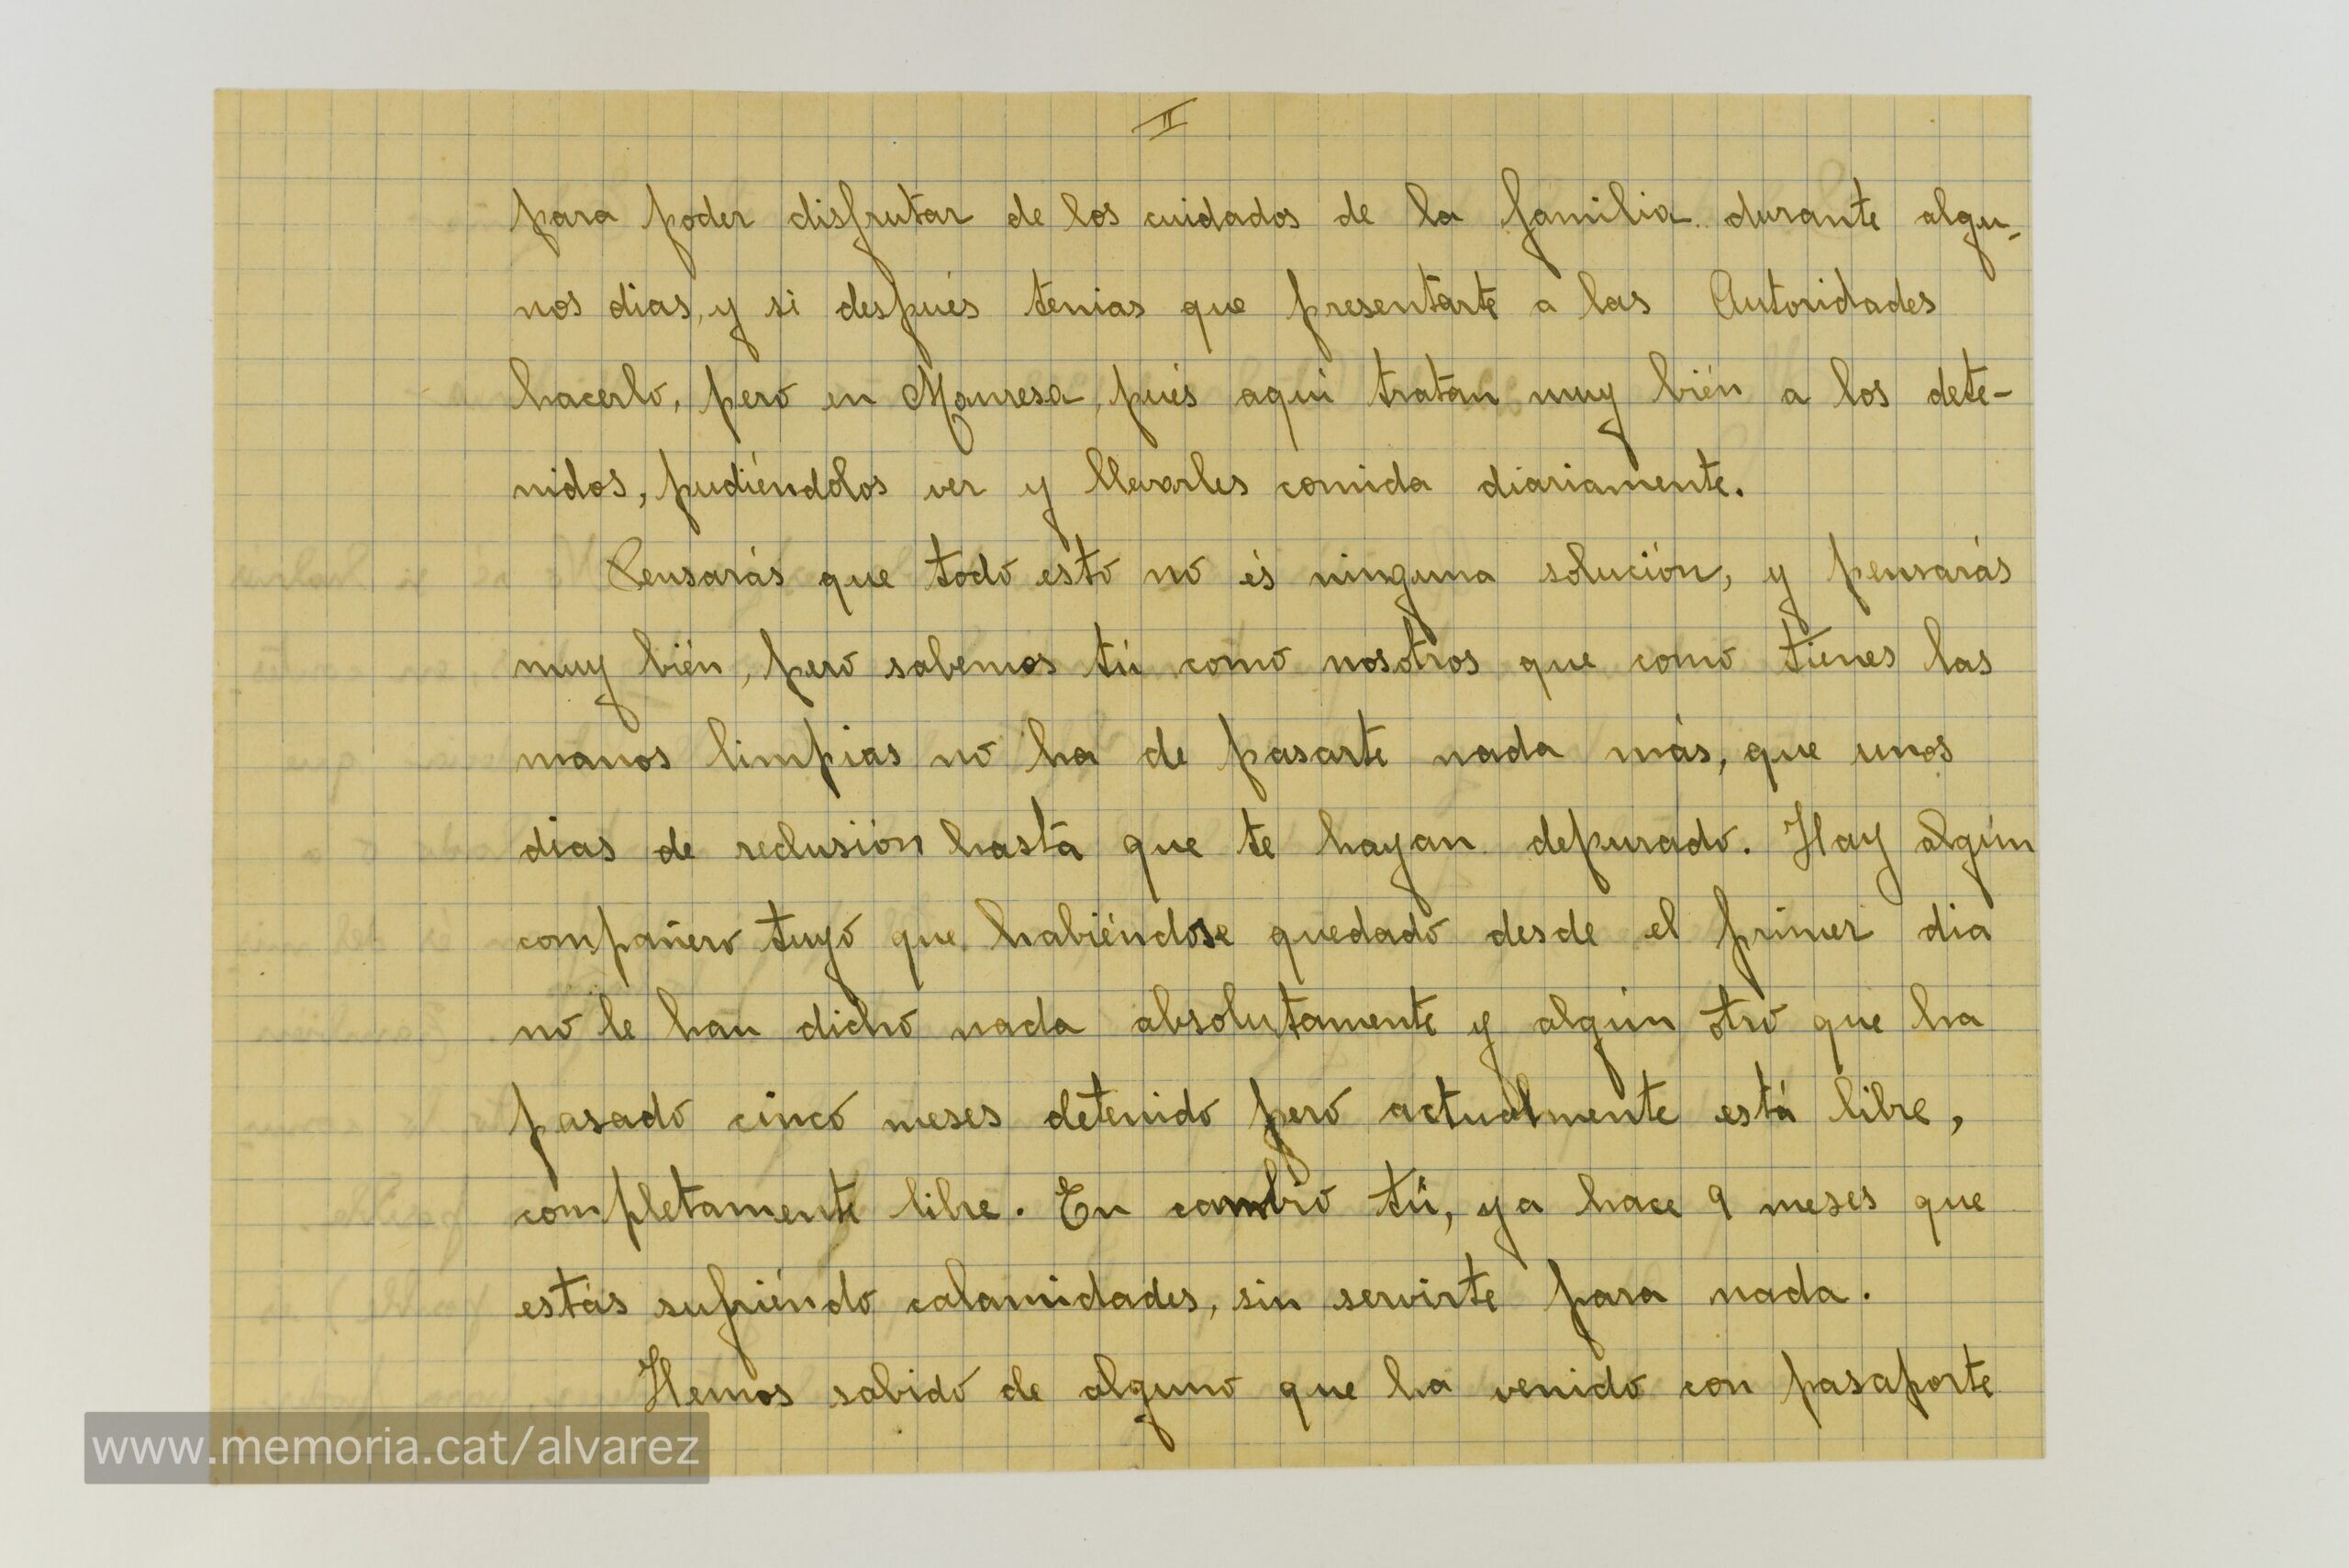 II
para poder disfrutar de los cuidados de la família durante algu-
nos dias, y si después tenias que presentarte a las Autoridades
hacerlo, pero en Manresa, pués aqui tratan muy bién a los dete-
nidos, pudiéndolos ver y llevarles comida diariamente.
Pensarás que todo esto no és ninguna solución, y pensarás
muy bién, pero sabemos tú como nosotros que como tienes las
manos limpias no ha de pasarte nada más, que unos
dias de reclusión hasta que te hayan depurado. Hay algún
compañero tuyo que habiéndose quedado desde el primer dia
no le han dicho nada absolutamente y algún otro que ha
pasado cinco meses detenido pero actualmente está libre,
completamente libre. En cambio tú, ya hace 9 meses que
estás sufriéndo calamidades, sin servirte para nada.
Hemos sabido de alguno que ha venido con pasaporte
www.memoria.cat/alvarez